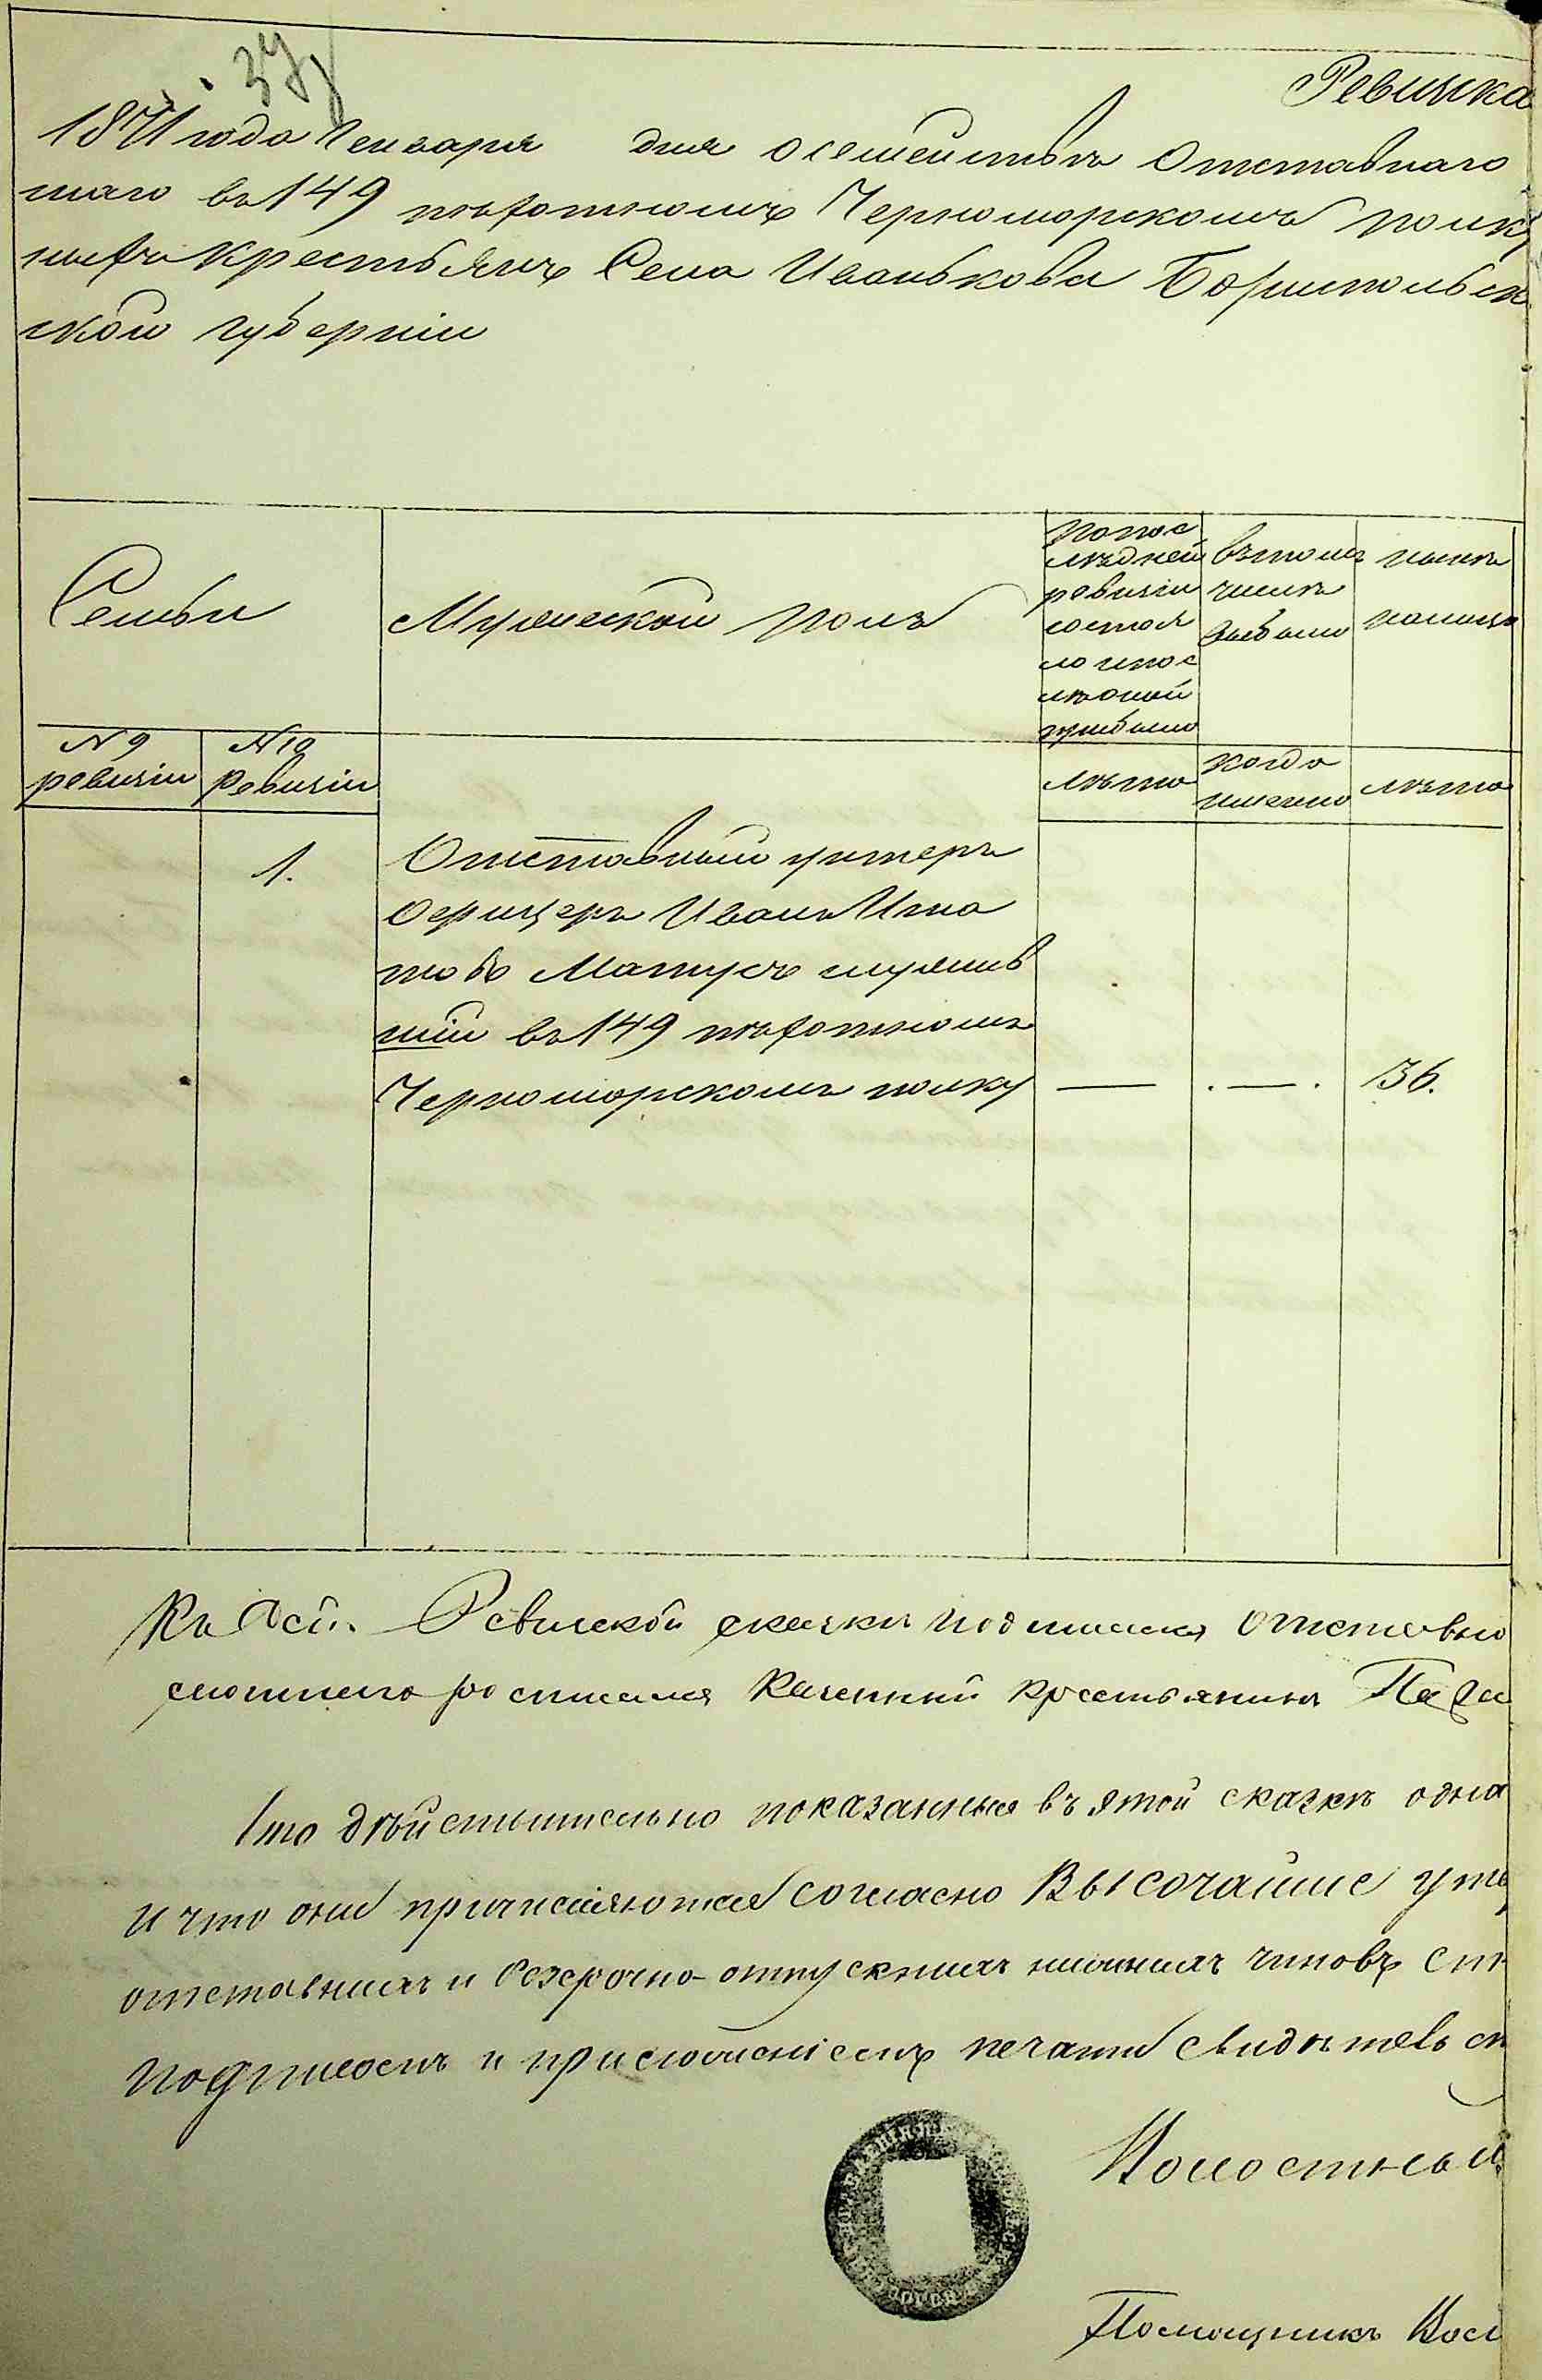 37
Ревизка
1871 года Генваря дня о семействѣ Отставнаго
шаго въ 149 пѣхотномъ Черноморскомъ полку
ныхъ крестьянъ Села Иванькова Борисполь
ской губерніи
Семьи
Мужеской полъ
попос
лѣдней
ревизіи
состоя
ло и пос
лѣ оной
прибыло
въ томъ
числѣ
выбыло
нынѣ
налицо
№ 9
ревизіи
№ 10
Ревизіи
лѣта
когда
именно
лѣта
1.
Отставный унтеръ
Офицеръ Иванъ Игна
товъ Матусъ служив
шій въ 149 пѣхотномъ
Черноморскомъ полку
— . — . 36.
Къ сей Ревизской сказки подписался Отставно
росписался Казенный крестьянинъ
Что дѣйствительно показанныя въ этой сказкѣ одна
и что они причисляются согласно Высочайше утв
отставныхъ и безсрочно-отпускныхъ нижнихъ чиновъ
подписомъ и приложеніемъ печати свидѣтельст
Волостный
Помощникъ Вол